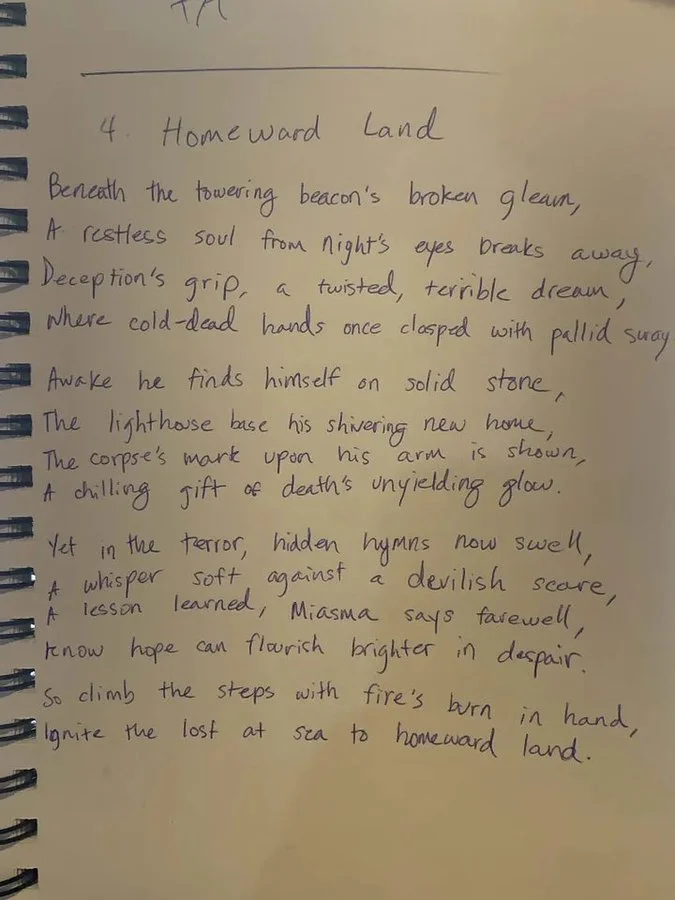 4. Homeward Land
Beneath the towering beacon's broken gleam,
A restless soul from night's eyes breaks away,
Deception's grip, a twisted, terrible dream,
Where cold-dead hands once clasped with pallid sway
Awake he finds himself on solid stone,
The lighthouse base his shivering new home,
The corpse's mark upon his arm is shown,
A chilling gift of death's unyielding glow.
Yet in the terror, hidden hymns now swell,
A whisper soft against a devilish scare,
A lesson learned, Miasma says farewell,
Know hope can flourish brighter in despair.
So climb the steps with fire's burn in hand,
Ignite the lost at sea to homeward land.